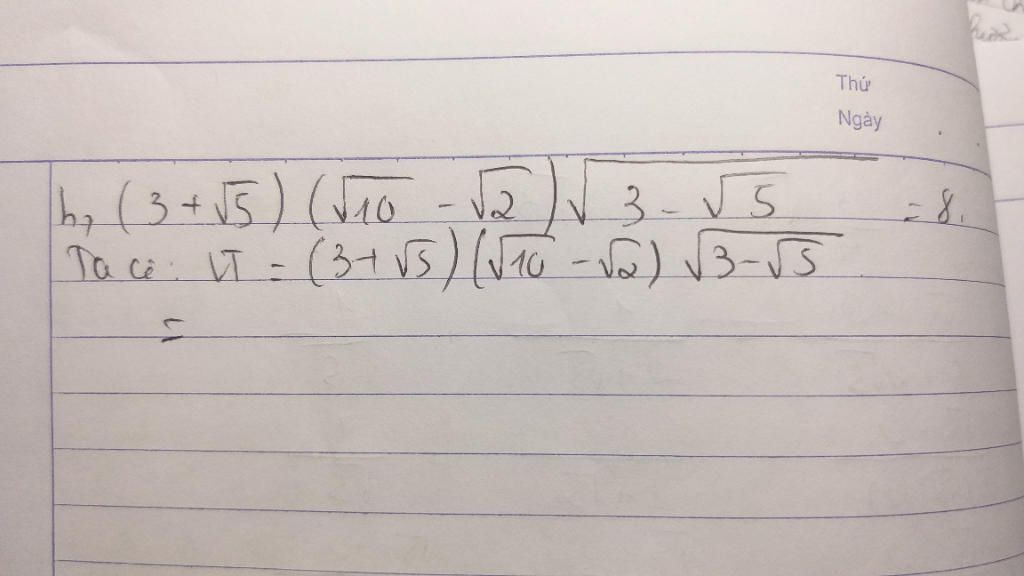 Thứ
Ngày
h, (3+√5)(√10 - √2)√(3 - √5) = 8.
Ta có: VT = (3+√5)(√10 - √2) √(3-√5)
=